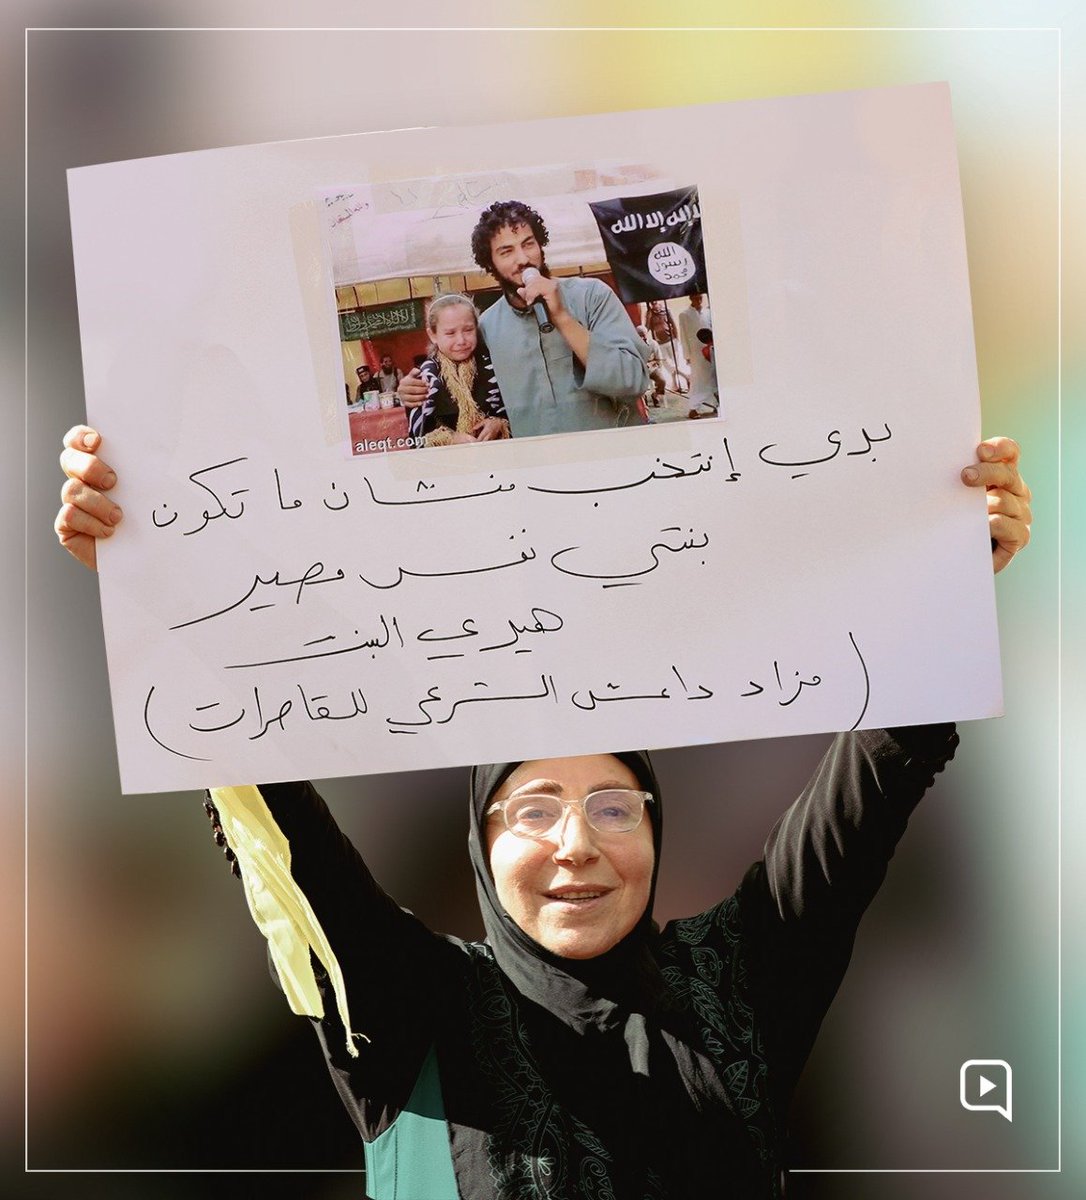 لا إله إلا الله
الله
رسول
محمد
aleqt.com
بدي إنتخب منشان ما تكون
بنتي نفس مصير
هيدي البنت
(مزاد داعش الشرعي للقاصرات)